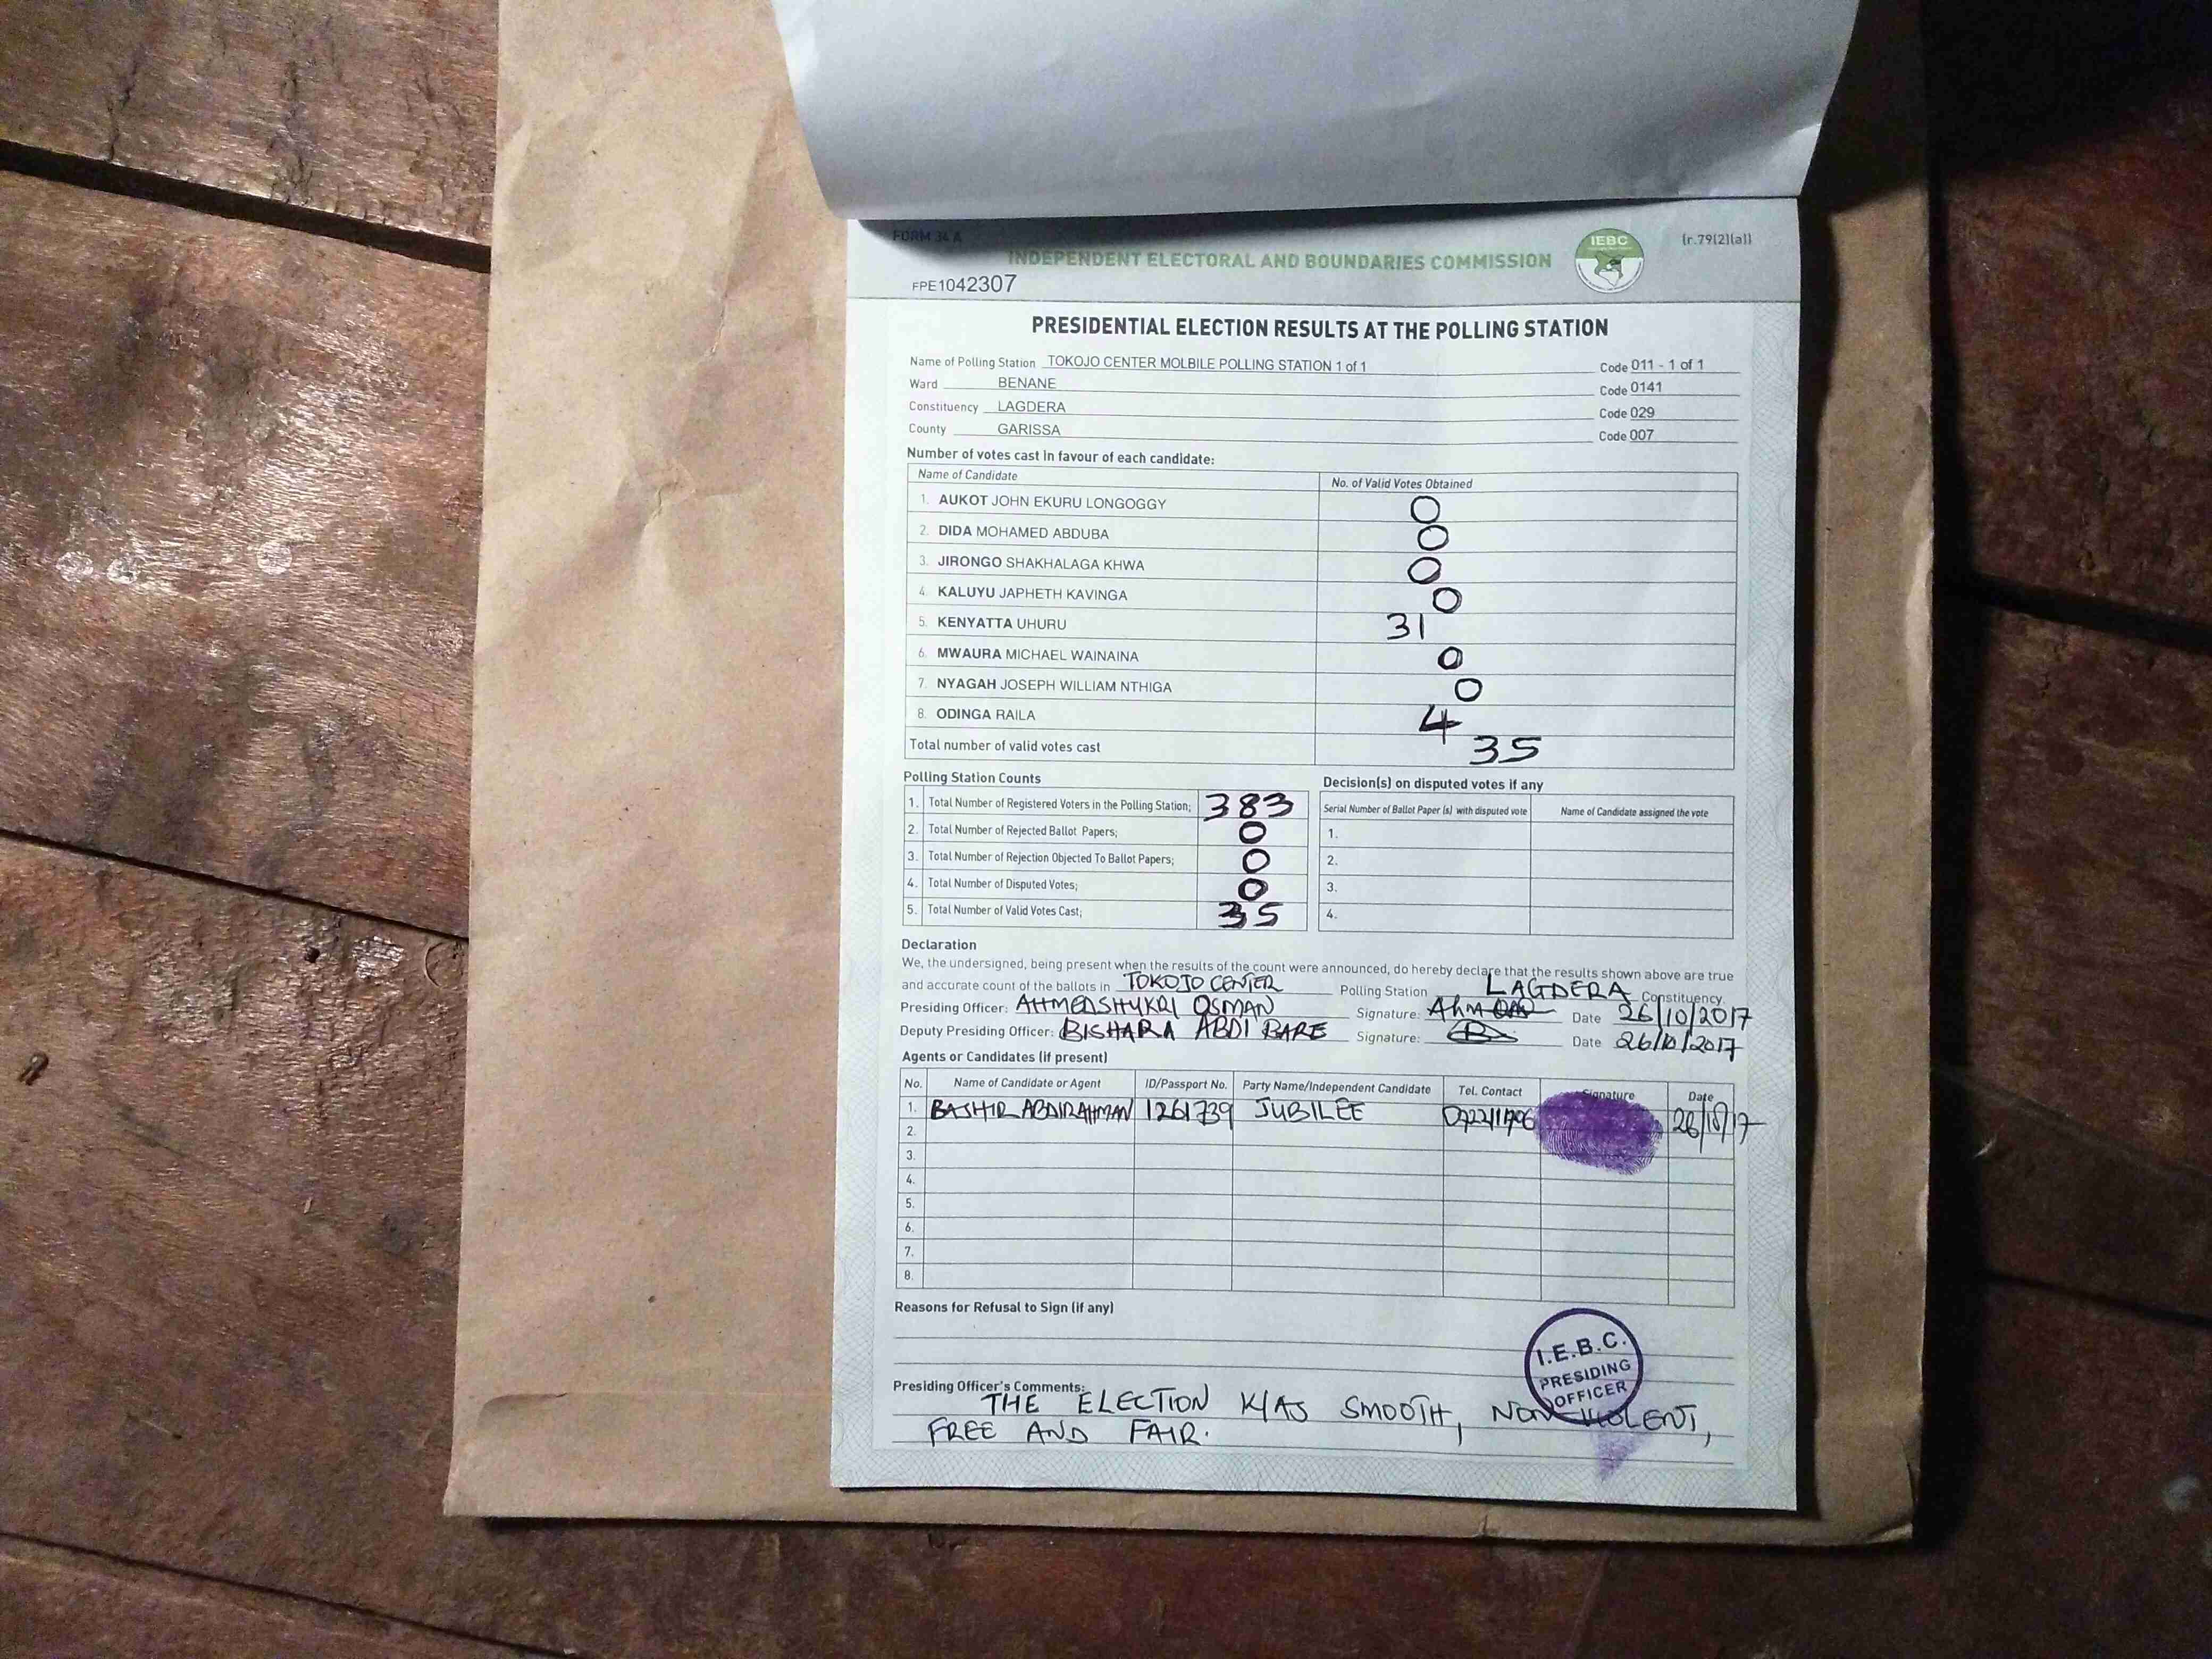 FORM 34 A
INDEPENDENT ELECTORAL AND BOUNDARIES COMMISSION
IEBC
(r.79(2)(a))
FPE1042307
PRESIDENTIAL ELECTION RESULTS AT THE POLLING STATION
Name of Polling Station TOKOJO CENTER MOLBILE POLLING STATION 1 of 1 Code 011 - 1 of 1
Ward BENANE Code 0141
Constituency LAGDERA Code 029
County GARISSA Code 007
Number of votes cast in favour of each candidate:
Name of Candidate No. of Valid Votes Obtained
1. AUKOT JOHN EKURU LONGOGGY 0
2. DIDA MOHAMED ABDUBA 0
3. JIRONGO SHAKHALAGA KHWA 0
4. KALUYU JAPHETH KAVINGA 0
5. KENYATTA UHURU 31
6. MWAURA MICHAEL WAINAINA 0
7. NYAGAH JOSEPH WILLIAM NTHIGA 0
8. ODINGA RAILA 4
Total number of valid votes cast 35
Polling Station Counts
1. Total Number of Registered Voters in the Polling Station; 383
2. Total Number of Rejected Ballot Papers; 0
3. Total Number of Rejection Objected To Ballot Papers; 0
4. Total Number of Disputed Votes; 0
5. Total Number of Valid Votes Cast; 35
Decision(s) on disputed votes if any
Serial Number of Ballot Paper (s) with disputed vote Name of Candidate assigned the vote
1.
2.
3.
4.
Declaration
We, the undersigned, being present when the results of the count were announced, do hereby declare that the results shown above are true
and accurate count of the ballots in TOKOJO CENTER Polling Station LAGDERA Constituency.
Presiding Officer: AHMEDSHUKRI OSMAN Signature: Date 26/10/2017
Deputy Presiding Officer: BISHARA ABDI BARE Signature: Date 26/10/2017
Agents or Candidates (if present)
No. Name of Candidate or Agent ID/Passport No. Party Name/Independent Candidate Tel. Contact Signature Date
1. BASHIR ABDIRAHMAN 1261739 JUBILEE 26/10/17
2.
3.
4.
5.
6.
7.
8.
Reasons for Refusal to Sign (if any)
I.E.B.C.
PRESIDING
OFFICER
Presiding Officer's Comments:
THE ELECTION WAS SMOOTH, NON-VIOLENT,
FREE AND FAIR.